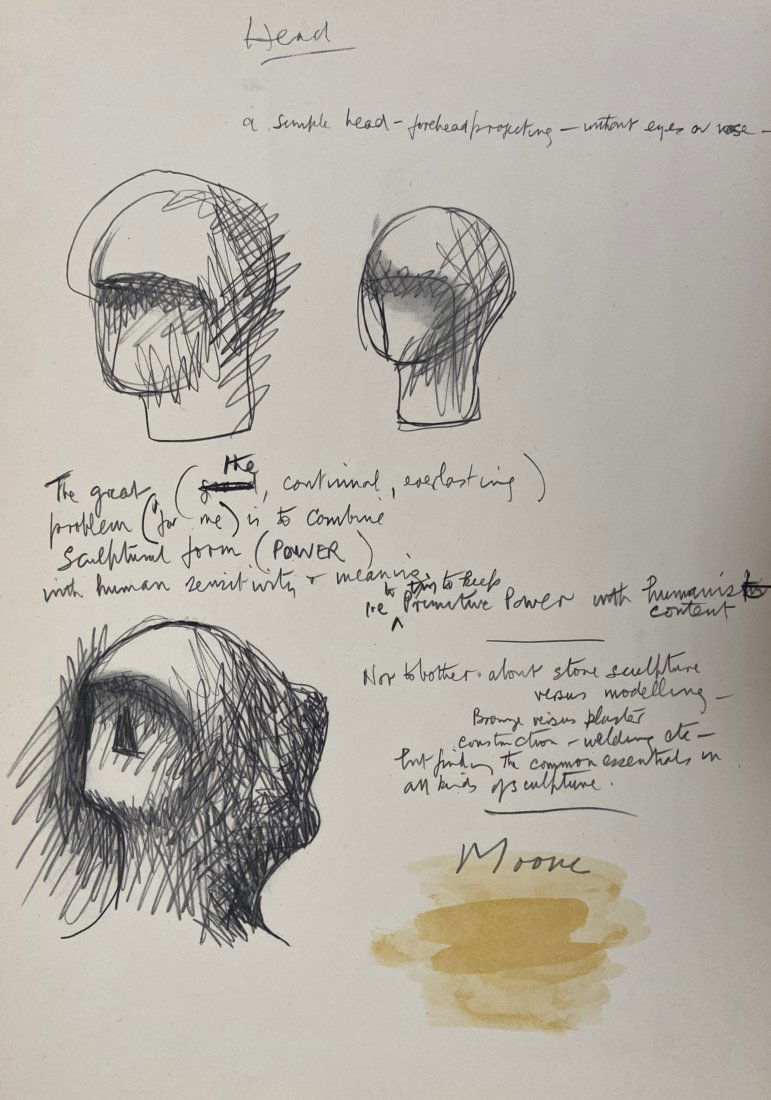 Head
a simple head – forehead projecting – without eyes or nose –
The great (the, continual, everlasting)
problem (for me) is to combine
Sculptural form (POWER)
with human sensitivity & meaning
to try to keep
Primitive Power with humanist
content
Not to bother about stone sculpture
versus modelling –
Bronze versus plaster
construction – welding etc –
but finding the common essentials in
all kinds of sculpture.
Moore